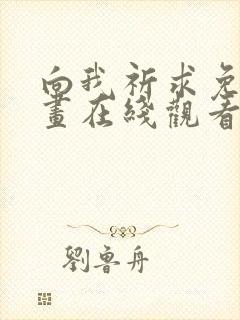 向我祈求免
畫在綫觀看
劉魯舟